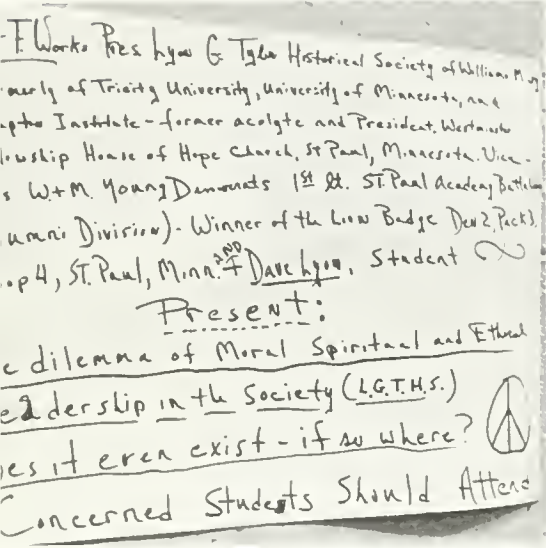 -F. Works Pres Lyon G. Tyler Historical Society of William M
merly of Tricity University, University of Minnesota, and
Institute - former acolyte and President, Westminst
lowship House of Hope Church, St Paul, Minnesota. Vice-
s W+M. Young Democrats 1st Lt. St. Paul Academy Battalion
umni Division) - Winner of the Lion Badge Den 2, Pack 3,
op 4, St. Paul, Minn. + 2ND Dave Lyon, Student
Present:
e dilemma of Moral Spiritual and Ethical
eadership in the Society (L.G.T.H.S.)
es it even exist - if so where?
Concerned Students Should Attend